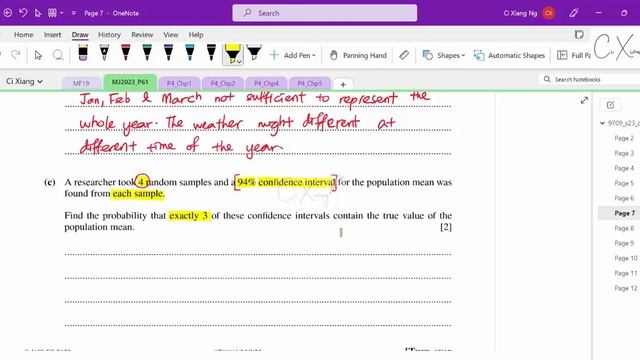 Page 7 - OneNote
Search
Ci Xiang Ng
CX
File
Home
Insert
Draw
History
Review
View
Help
Add Pen
Panning Hand
Shapes
Arrange
Convert
Ci Xiang
MF19
MJ2023_P61
P4_Chp1
P4_Chp2
P4_Chp4
P4_Chp5
+
Search Notebooks
Jan, Feb & March not sufficient to represent the
whole year. The weather might different at
different time of the year.
(c) A researcher took 4 random samples and a 94% confidence interval for the population mean was
found from each sample.
Find the probability that exactly 3 of these confidence intervals contain the true value of the
population mean. [2]
Ci Xiang
9709_s23_
Page 2
Page 3
Page 4
Page 5
Page 6
Page 7
Page 8
Page 9
Page 10
Page 11
Page 12